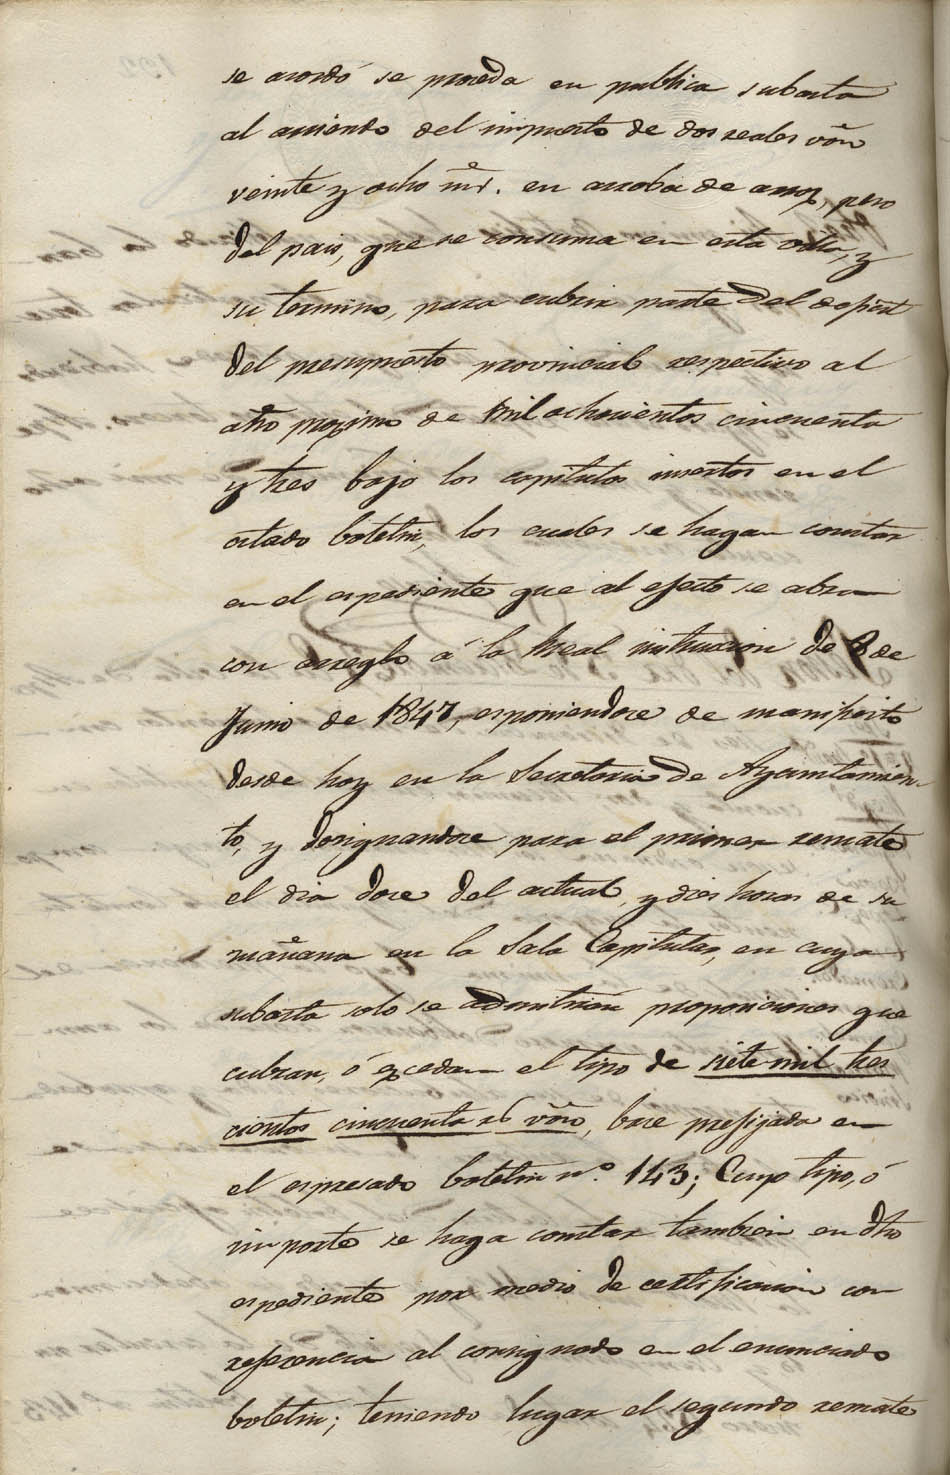 se acordó se proceda en publica subasta
al arriendo del impuesto de dos reales von
veinte y ocho mrs. en arroba de arroz, pero
del pais, que se consuma en esta villa, y
su termino, para cubrir parte del deficit
del presupuesto provincial respectivo al
año proximo de mil ochocientos cincuenta
y tres bajo los capitulos insertos en el
citado boletin, los cuales se hagan constar
en el espediente que al efecto se abra
con arreglo á la Real instruccion de 8 de
Junio de 1847, esponiendose de manifiesto
desde hoy en la Secretaria de Ayuntamien-
to, y designandose para el primer remate
el dia doce del actual, y diez horas de su
mañana en la Sala Capitular, en cuya
subasta solo se admitiran proposiciones que
cubran, ó excedan el tipo de siete mil tres
cientos cincuenta rs von, base prefijada en
el espresado boletin nº. 143; Cuyo tipo, ó
importe se haga constar tambien en dho
espediente por medio de certificacion con
referencia al consignado en el enunciado
boletin; teniendo lugar el segundo remate